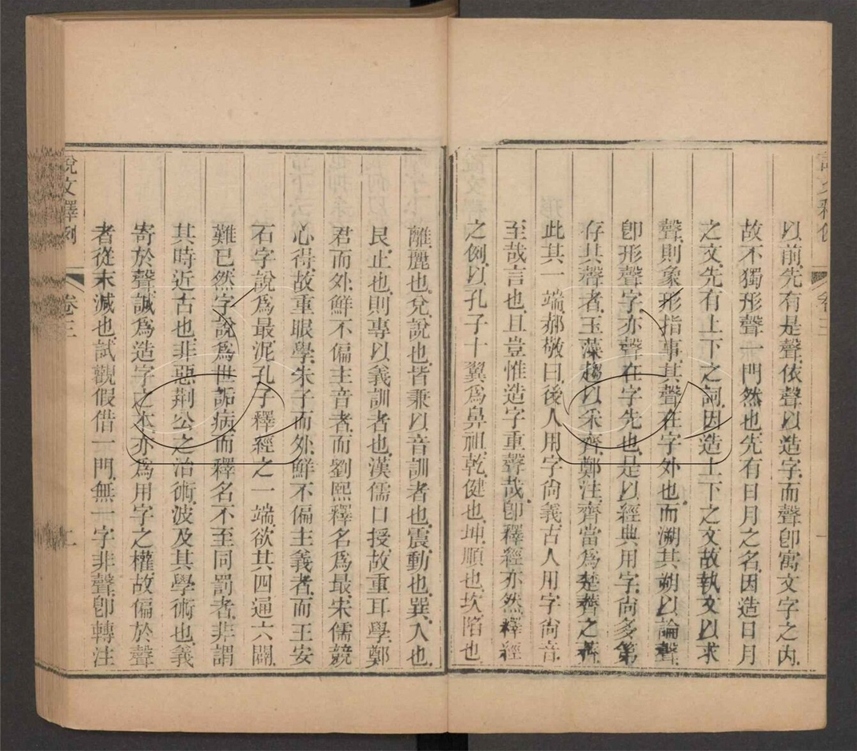 說文釋例
卷三
以前先有是聲依聲以造字而聲卽寓文字之內
故不獨形聲一門然也先有日月之名因造日月
之文先有上下之詞因造上下之文故執文以求
聲則象形指事其聲在字外也而溯其朔以論聲
卽形聲字亦聲在字先也是以經典用字尙多第
存其聲者玉藻趨以采齊鄭注齊當爲楚薺之薺
此其一端郝敬曰後人用字尙義古人用字尙音
至哉言也且豈惟造字重聲哉卽釋經亦然釋經
之例以孔子十翼爲鼻祖乾健也坤順也坎陷也
離麗也兌說也皆兼以音訓者也震動也巽入也
艮止也則專以義訓者也漢儒口授故重耳學鄭
君而外鮮不偏主音者而劉熙釋名爲最宋儒競
心得故重眼學朱子而外鮮不偏主義者而王安
石字說爲最泥孔子釋經之一端欲其四通六闢
難已然字說爲世詬病而釋名不至同罰者非謂
其時近古也非惡荆公之治術波及其學術也義
寄於聲誠爲造字之本亦爲用字之權故偏於聲
者從末減也試觀假借一門無一字非聲卽轉注
說文釋例
卷三